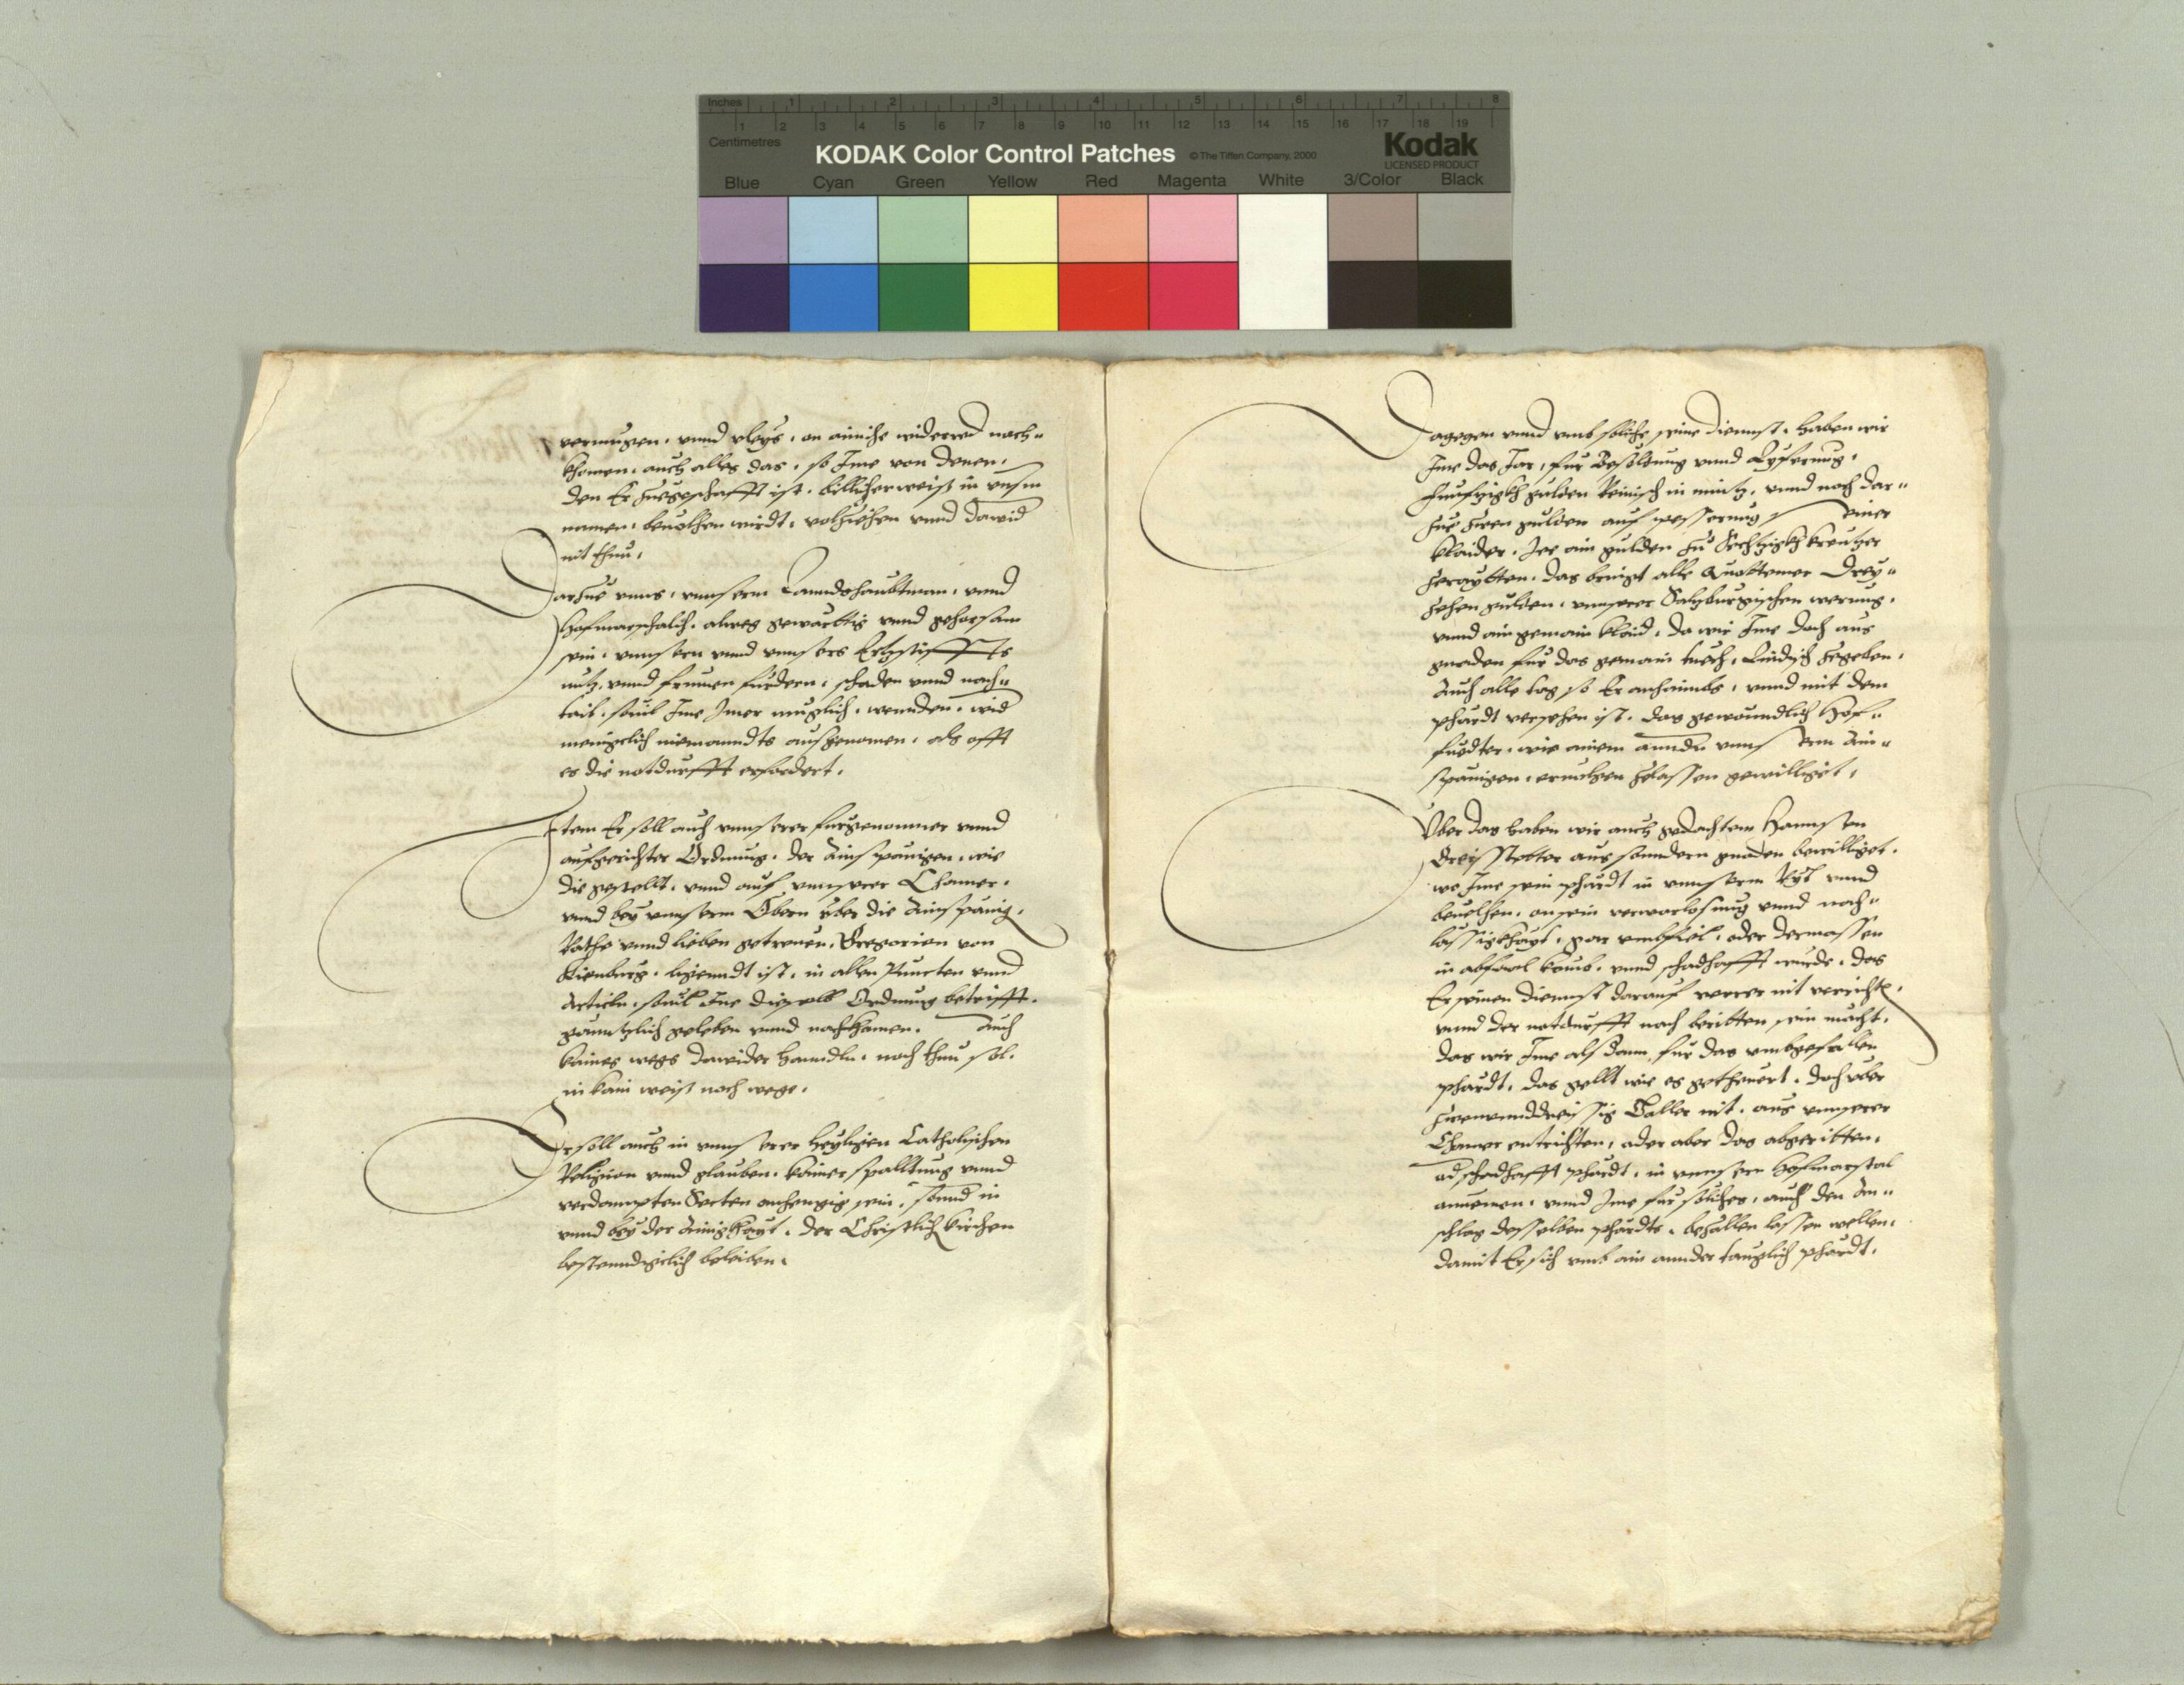 Inches 1 2 3 4 5 6 7 8
Centimetres 1 2 3 4 5 6 7 8 9 10 11 12 13 14 15 16 17 18 19
KODAK Color Control Patches © The Tiffen Company, 2000 Kodak
LICENSED PRODUCT
Blue Cyan Green Yellow Red Magenta White 3/Color Black
vermugen. vnnd vleys. on ainiche widerred nach„
khomen. auch alles das. so Ime von denen.
den Er zuegeschafft ist. billicherweiß in vnsm
namen. beuolhen wirdt. volziehen vnnd dawid
nit thun.
Darzue vnns. vnnserm Lanndshaubtman. vnnd
Hofmarschalch. alweg gewarttig vnnd gehorsam
sein. vnnsern vnnd vnnsers Ertzstiffts
nutz. vnnd frumen fürdern. schaden vnnd nach„
tail. souil Ime Imer muglich. wennden. wid
menigclich niemanndts ausgenomen. als offt
es die notdurfft erfordert.
Item Er soll auch vnnserer furgenomner vnnd
aufgerichter Ordnung. der Ainspanigen. wie
die gestellt. vnnd auf vnnserer Chamer.
vnnd bey vnnserm Obern vber die Ainspanig.
Rathe vnnd lieben getreuen. Gregorien von
ligenndt ist. in allen Puncten vnnd
Articln. souil Ine dieselb Ordnung betrifft.
ganntzlich geleben vnnd nachkhamen. Auch
kaines wegs dawider hanndln. noch thun sol.
in kain weiß noch wege.
Er soll auch in vnnserer Heyligen Catholischen
Religion vnnd glauben. kainer spalltung vnnd
verdampten Secten anhengig sein. sonnd in
vnnd bey der Ainigkayt. der Christlich kirchen
bestenndigclich beleiben.
Dagegen vnnd vmb solliche seine diennst. Haben wir
Ime das Jar. fur Besoldung vnnd Lyferung.
funfzigkh gulden Reinisch in müntz. vnnd noch dar„
zue zwen gulden auf pesserung seiner
klaider. Jee ain gulden zu Sechtzigkh kreutzer
geraytten. das bringt alle Quottemer Drey„
zehen gulden. vnnserer Saltzburgischen werung.
vnnd ain gemain klaid. da wir Ime doch aus
gnaden für das gemain tuech. Lindisch zegeben.
Auch alle tag so Er anhaimbs. vnnd mit dem
phärdt versehen ist. das gewonndlich Hof„
fuedter. wie ainem anndn vnnserm Ain„
spanigen. eruolgen zelassen gewilliget.
Vber das haben wir auch gedachtem Hannsen
aus sonndern gnaden bewilliget.
wo Ime sein phärdt in vnnserm Ryt vnnd
beuelhen. on sein verwarlosung vnnd nach„
lassigkhayt. gar vmbfiel. oder dermassen
in abfaal kämb. vnnd schadhafft wurde. das
Er seinen diennst darauf verrer nit verricht.
vnnd der notdurfft nach beritten sein mächt.
das wir Ime alsdann für das vmbgefallen
phärdt. das gellt wie es getheuert. doch vber
zwenunddreissig Taller nit. aus vnnserer
Chamer entrichten. oder aber das abgeritten.
od schadhafft phärdt. in vnnsern Hofmarstal
annemen. vnnd Ime fur solliches. auch den An„
schlag desselben phärdts. bezallen lassen wellen.
damit Er sich vmb ain annder tauglich phärdt.